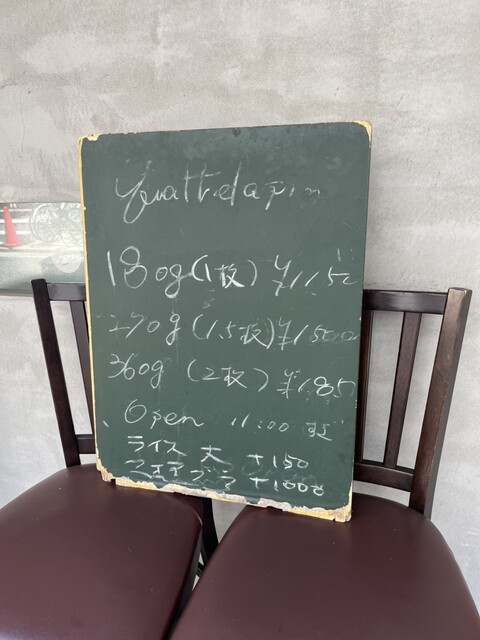 180g (1枚) ¥1150
270g (1.5枚) ¥1500
360g (2枚) ¥1850
Open 11:00
ライス 大 +150
+1000